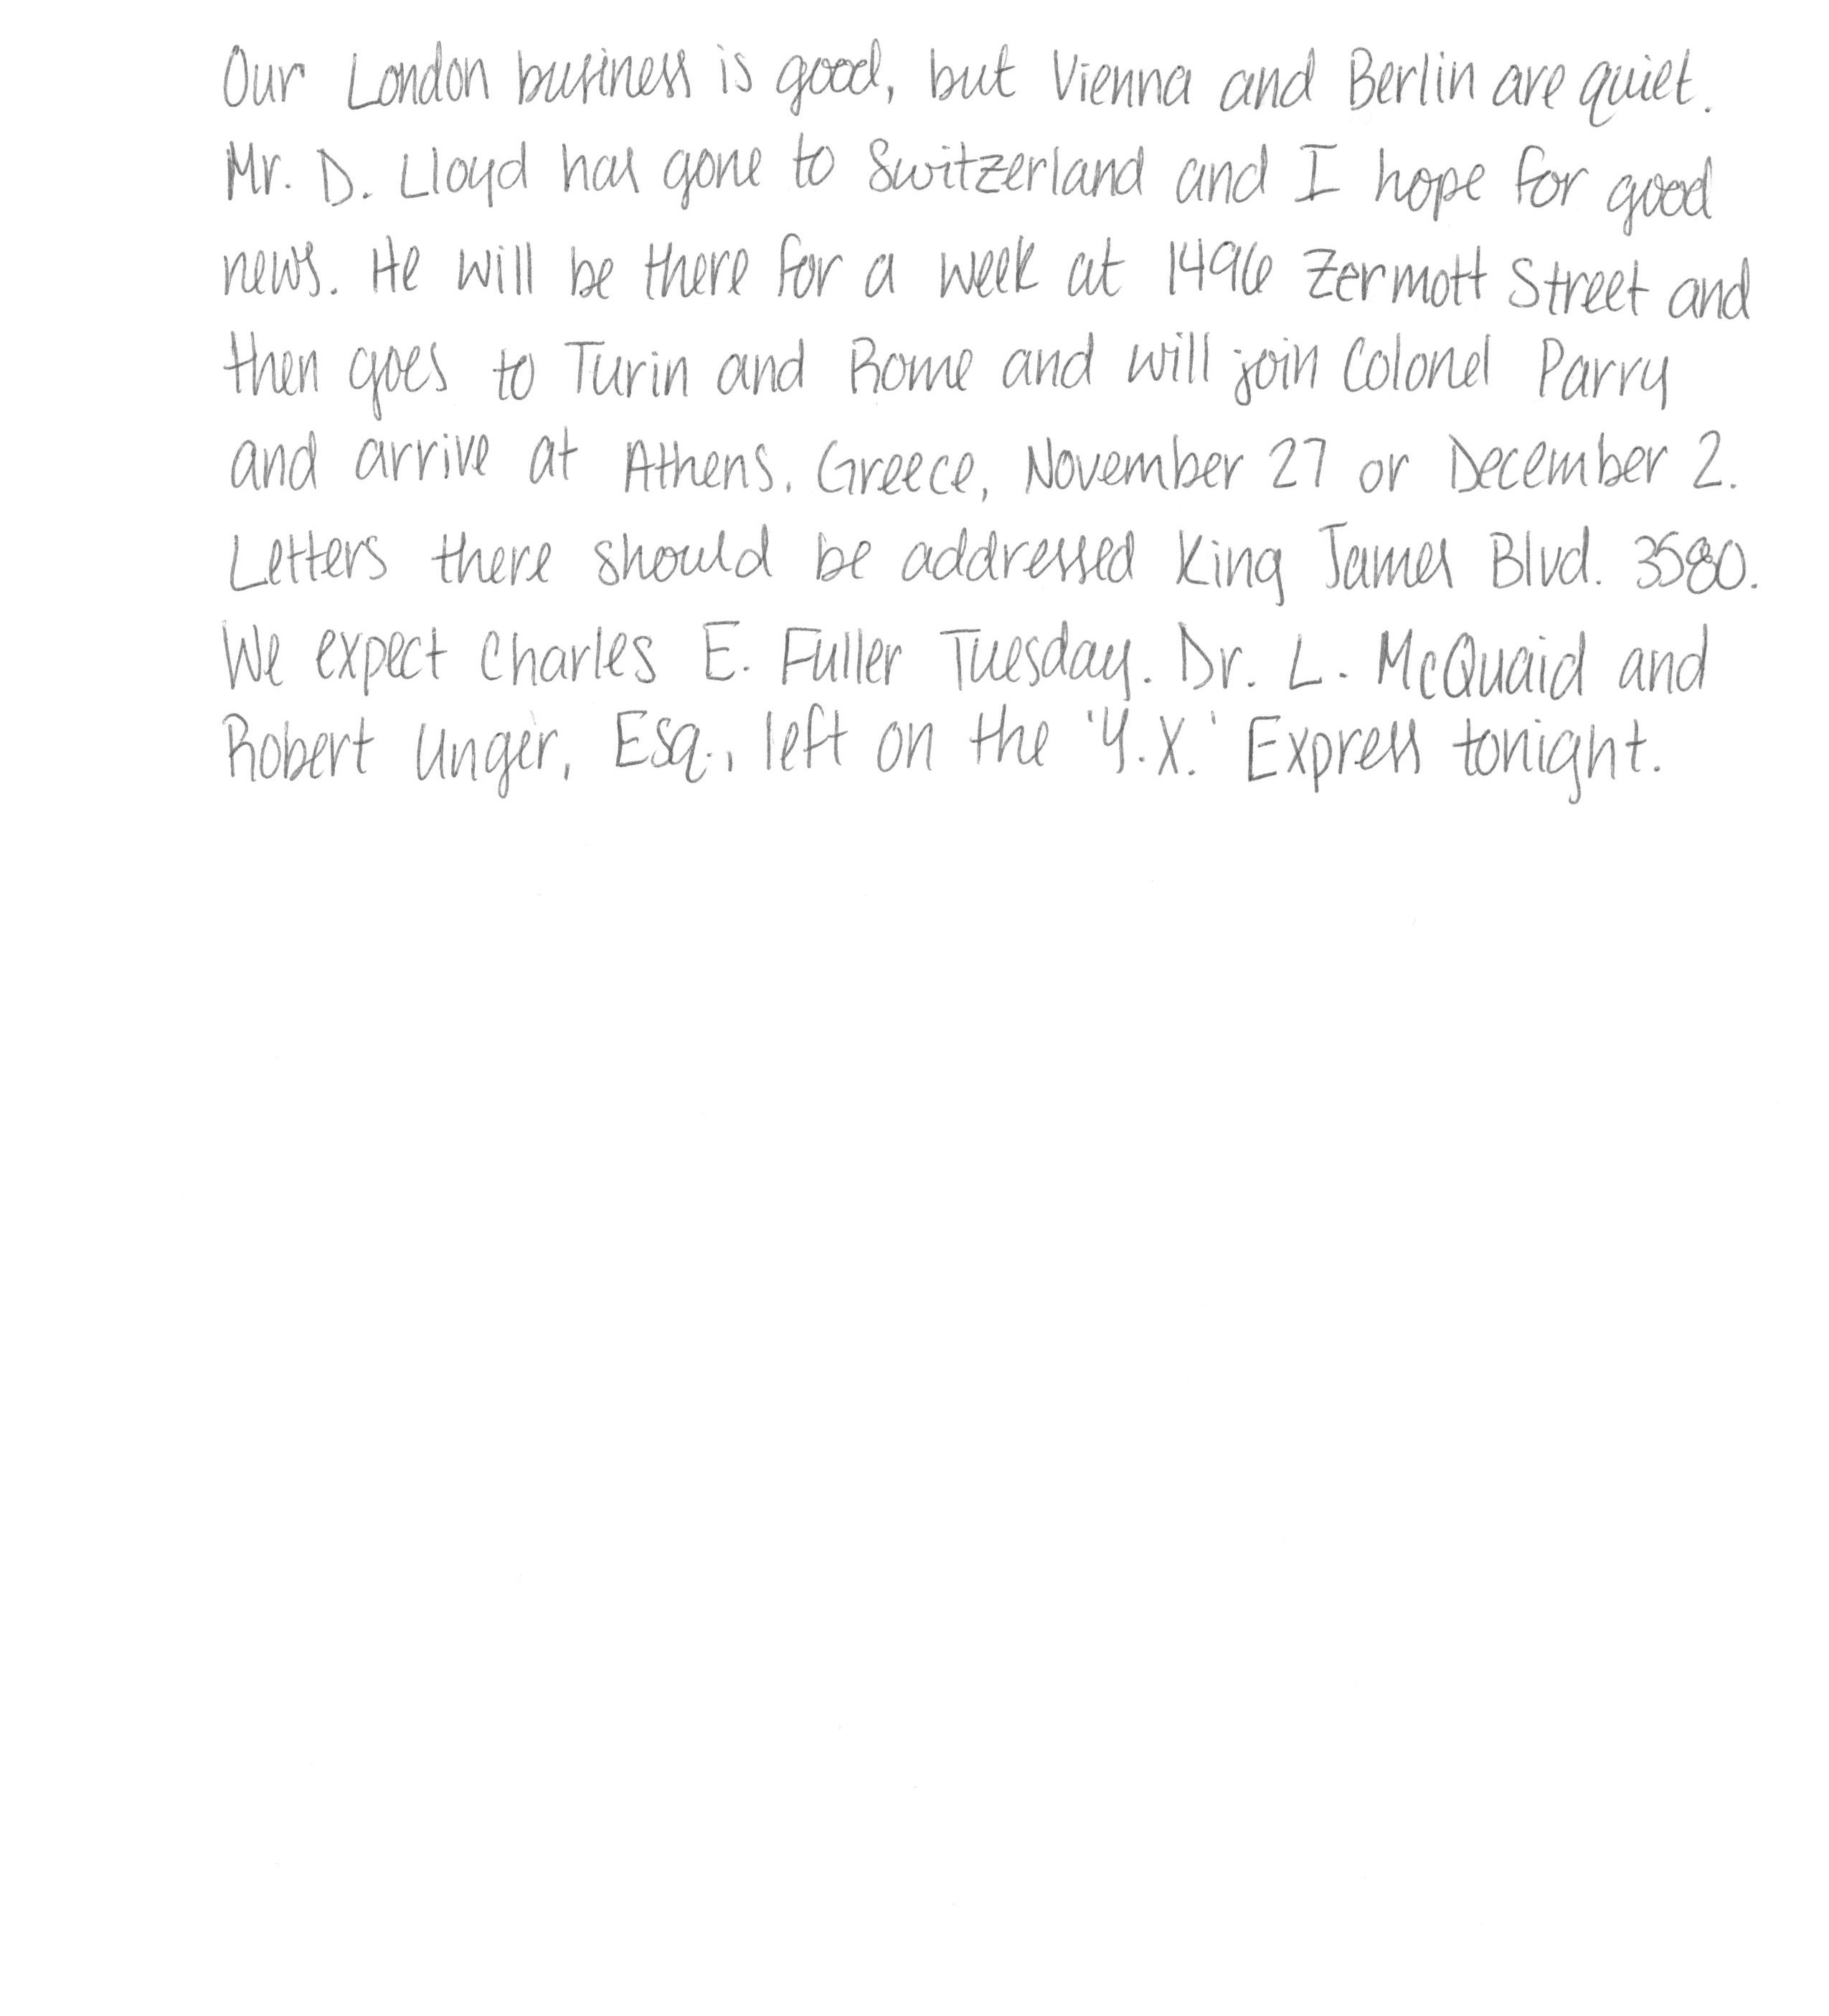 Our London business is good, but Vienna and Berlin are quiet.
Mr. D. Lloyd has gone to Switzerland and I hope for good
news. He will be there for a week at 1496 Zermott Street and
then goes to Turin and Rome and will join Colonel Parry
and arrive at Athens, Greece, November 27 or December 2.
Letters there should be addressed King James Blvd. 3580.
We expect Charles E. Fuller Tuesday. Dr. L. McQuaid and
Robert Unger, Esq., left on the 'Y.X.' Express tonight.